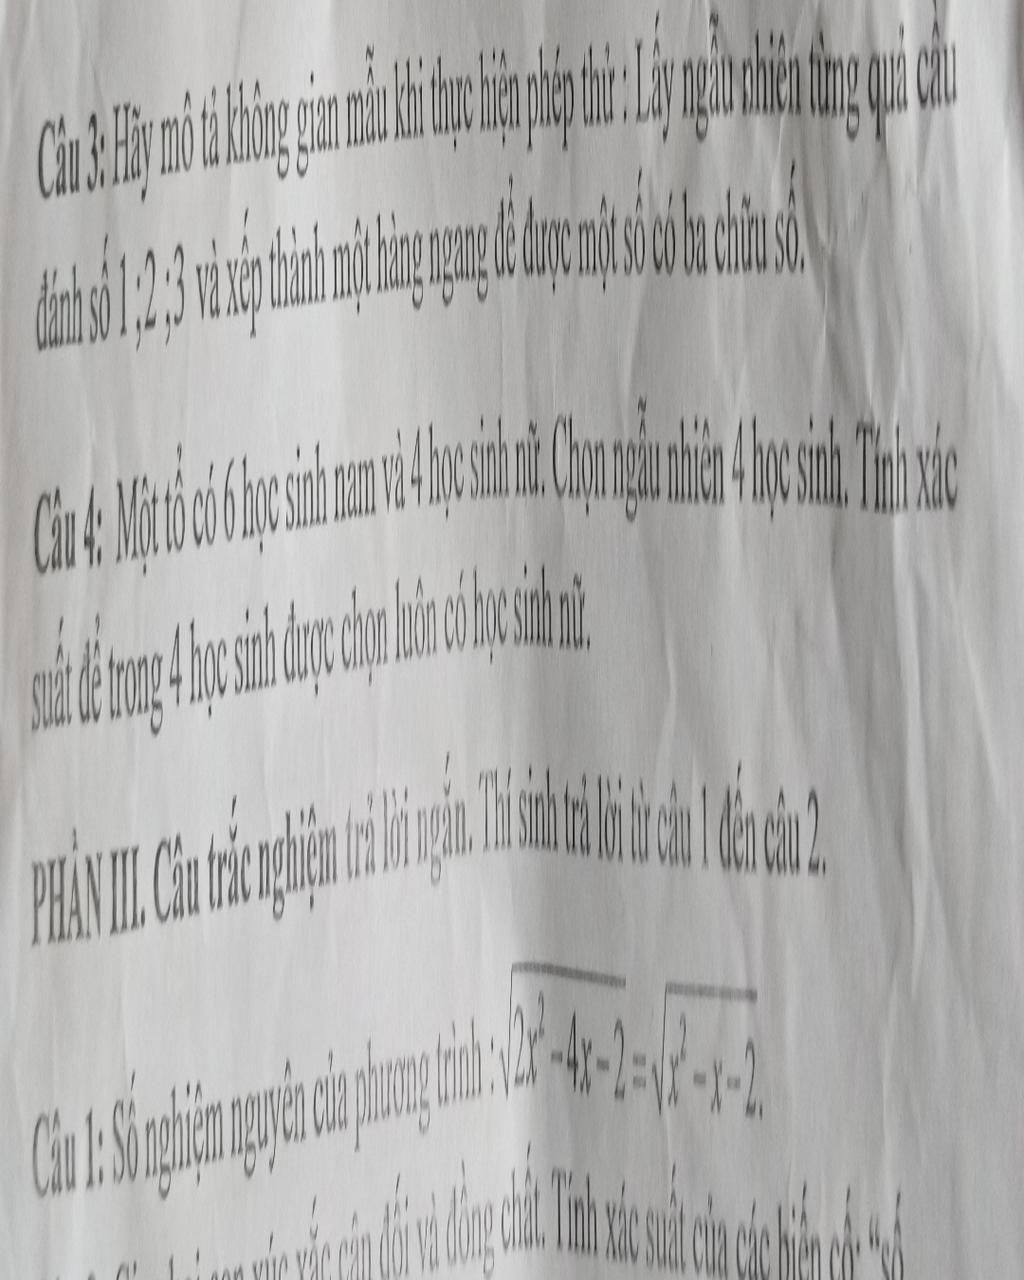 Câu 3: Hãy mô tả không gian mẫu khi thực hiện phép thử : Lấy ngẫu nhiên từng quả cầu
đánh số 1 ;2 ;3 và xếp thành một hàng ngang để được một số có ba chữu số.
Câu 4: Một tổ có 6 học sinh nam và 4 học sinh nữ. Chọn ngẫu nhiên 4 học sinh. Tính xác
suất để trong 4 học sinh được chọn luôn có học sinh nữ.
PHẦN III. Câu trắc nghiệm trả lời ngắn. Thí sinh trả lời từ câu 1 đến câu 2.
Câu 1: Số nghiệm nguyên của phương trình : √(2x² −4x−2) = √(x² −x−2).
con xúc xắc cân đối và đồng chất. Tính xác suất của các biến cố: “số